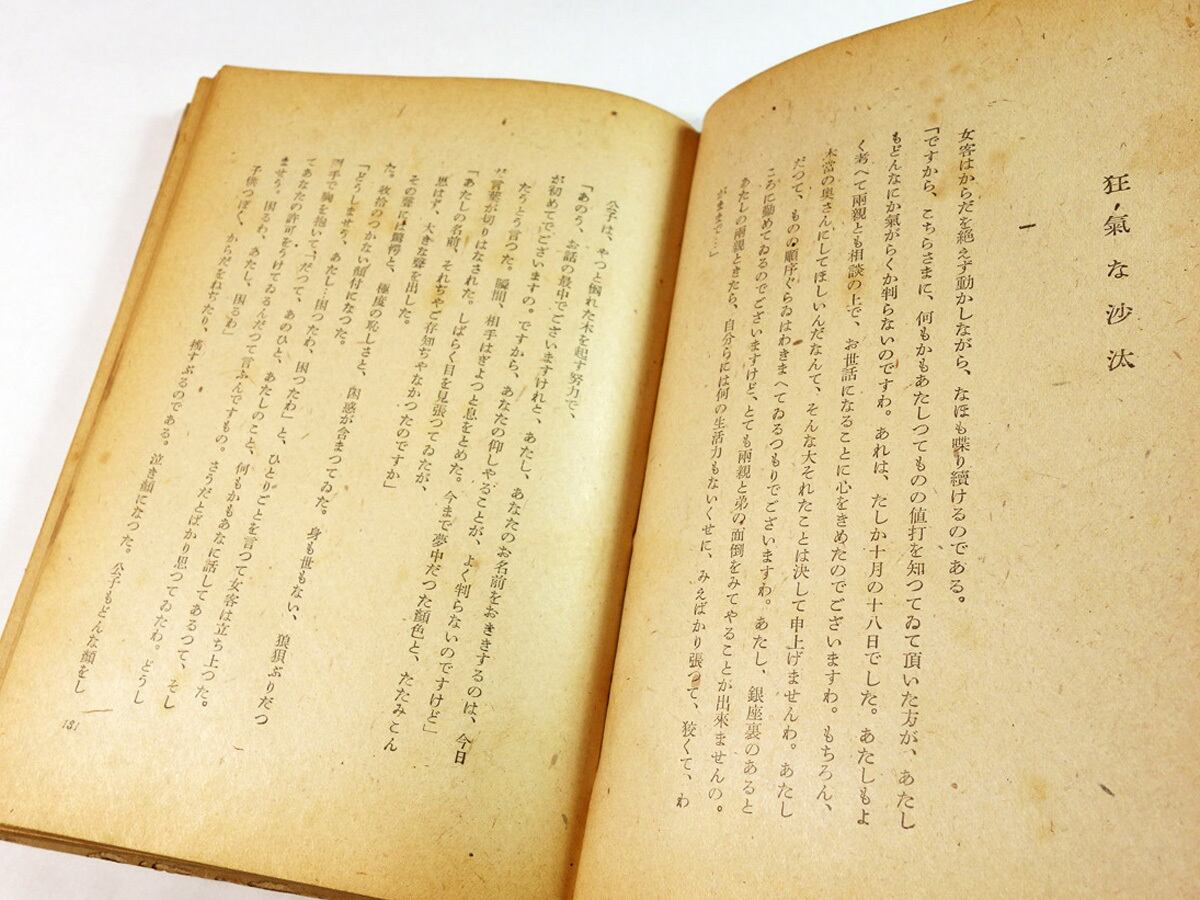 狂氣な沙汰
一
女客はからだを絶えず動かしながら、なほも喋り續けるのである。
「ですから、こちらさまに、何もかもあたしつてものの値打を知つてゐて頂いた方が、あたし
もどんなにか氣がらくか判らないのですわ。あれは、たしか十月の十八日でした。あたしもよ
く考へて兩親とも相談の上で、お世話になることに心をきめたのでございますわ。もちろん、
本當の奥さんにしてほしいんだなんて、そんな大それたことは決して申上げませんわ。あたし
だつて、ものの順序ぐらゐはわきまへてゐるつもりでございますわ。あたし、銀座裏のあると
ころに勤めてゐるのでございますけど、とても兩親と弟の面倒をみてやることが出來ませんの。
あたしの兩親ときたら、自分らには何の生活力もないくせに、みえばかり張つて、狡くて、わ
がまゝで…」
公子は、やつと倒れた木を起す努力で、
「あのう、お話の最中でございますけれど、あたし、あなたのお名前をおききするのは、今日
が初めてでございますの。ですから、あなたの仰しやることが、よく判らないのですけど」
たうとう言つた。瞬間、相手はぎよつと息をとめた。今まで夢中だつた顏色と、たたみこん
だ言葉が切りはなされた。しばらく目を見張つてゐたが、
「あたしの名前、それぢやご存知ぢやなかつたのですか」
思はず、大きな聲を出した。
その聲には驚愕と、極度の恥しさと、困惑が含まつてゐた。身も世もない、狼狽ぶりだつ
た。收拾のつかない顏付になつた。
「どうしませう、あたし…困つたわ、困つたわ」と、ひとりごとを言つて女客は立ち上つた。
兩手で胸を抱いて、「だつて、あのひと、あたしのこと、何もかもあなに話してあるつて、そし
てあなたの許可をうけてゐるんだつて言ふんですもの。さうだとばかり思つてゐたわ。どうし
ませう。困るわ、あたし、困るわ」
子供つぽく、からだをねぢたり、搖すぶるのである。泣き顏になつた。公子もどんな顏をし
131